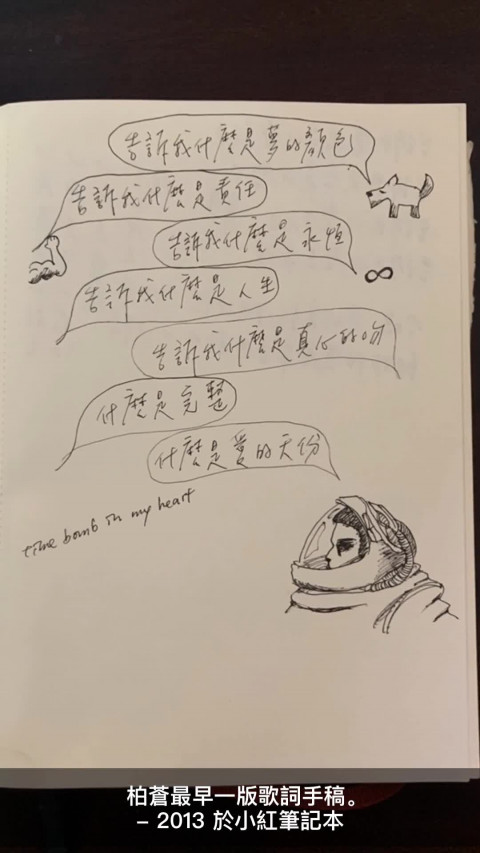 告訴我什麼是夢的顏色
告訴我什麼是責任
告訴我什麼是永恆
告訴我什麼是人生
告訴我什麼是真心的吻
什麼是完整
什麼是愛的天份
time bomb in my heart
柏蒼最早一版歌詞手稿。
– 2013 於小紅筆記本